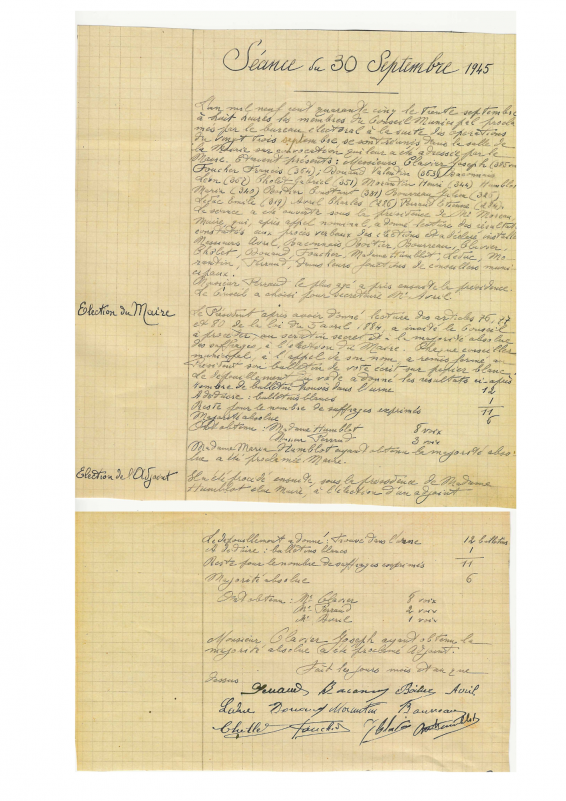 Séance du 30 Septembre 1945
L'an mil neuf cent quarante cinq le trente septembre
à huit heures les membres du Conseil Municipal procla-
més par le bureau électoral à la suite des opérations
du vingt trois septembre se sont réunis dans la salle de
la Mairie sur convocation qui leur a été adressée par le
Maire. Etaient présents: Messieurs Clavier Joseph
Foucher François (364), Valentin (363), Baconnais
Léon (357) Cholet Gabriel (351) Morantin Henri (344) Humblot
Maria (340) Constant (337) Bourreau
Leduc Emile (319) Avril Charles (286) Ferrand Etienne
La séance a été ouverte sous la présidence de Mr
Maire qui, après appel nominal, a donné lecture des résultats
constatés aux procès verbaux des élections et a déclaré installés
Messieurs Avril, Baconnais, Boitier, Bourreau, Clavier,
Cholet, Foucher, Madame Humblot, Leduc, Mo-
rantin, Ferrand, dans leurs fonctions de conseillers muni-
cipaux.
Monsieur Ferrand le plus âgé a pris ensuite la présidence.
Le Conseil a choisi pour secrétaire Mr Avril
Election du Maire
Le Président après avoir donné lecture des articles 76, 77
et 80 de la loi du 5 avril 1884, a invité le Conseil
à procéder au scrutin secret et à la majorité absolue
des suffrages, à l'élection du Maire. Chaque conseiller
municipal, à l'appel de son nom, a remis fermé au
Président son bulletin de vote écrit sur papier blanc.
Le dépouillement du vote a donné les résultats ci-après
Nombre de bulletins trouvés dans l'urne 12
A déduire: bulletins blancs 1
Reste pour le nombre de suffrages exprimés 11
Majorité absolue 6
Ont obtenu: Madame Humblot 8 voix
Monsieur Ferrand 3 voix
Madame Maria Humblot ayant obtenu la majorité abso-
lue a été proclamée Maire.
Election de l'Adjoint
Il a été procédé ensuite, sous la présidence de Madame
Humblot élue Maire, à l'élection d'un adjoint
Le dépouillement a donné: Trouvé dans l'urne 12 bulletins
A déduire: bulletins blancs 1
Reste pour le nombre de suffrages exprimés 11
Majorité absolue 6
Ont obtenu: Mr Clavier 8 voix
Mr Ferrand 2 voix
Mr Avril 1 voix
Monsieur Clavier Joseph ayant obtenu la
majorité absolue a été proclamé Adjoint.
Fait les jours mois et an que
Dessus
Ferrand Baconnais Boitier Avril
Leduc Morantin Bourreau
Foucher